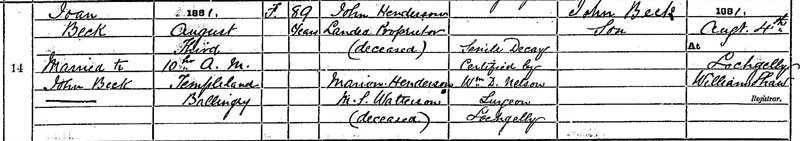 14
Joan
Beck
Married to
John Beck
1881.
August
Third
10hr A. M.
Templeland
Ballingry
F.
89
Years
John Henderson
Landed Proprietor
(deceased)
Marion Henderson
M. S. Watterson
(deceased)
Senile Decay
Certified by
Wm D. Nelson
Surgeon
Lochgelly
John Beck
Son
1881.
Augt. 4th
At
Lochgelly
William Shaw
Registrar.